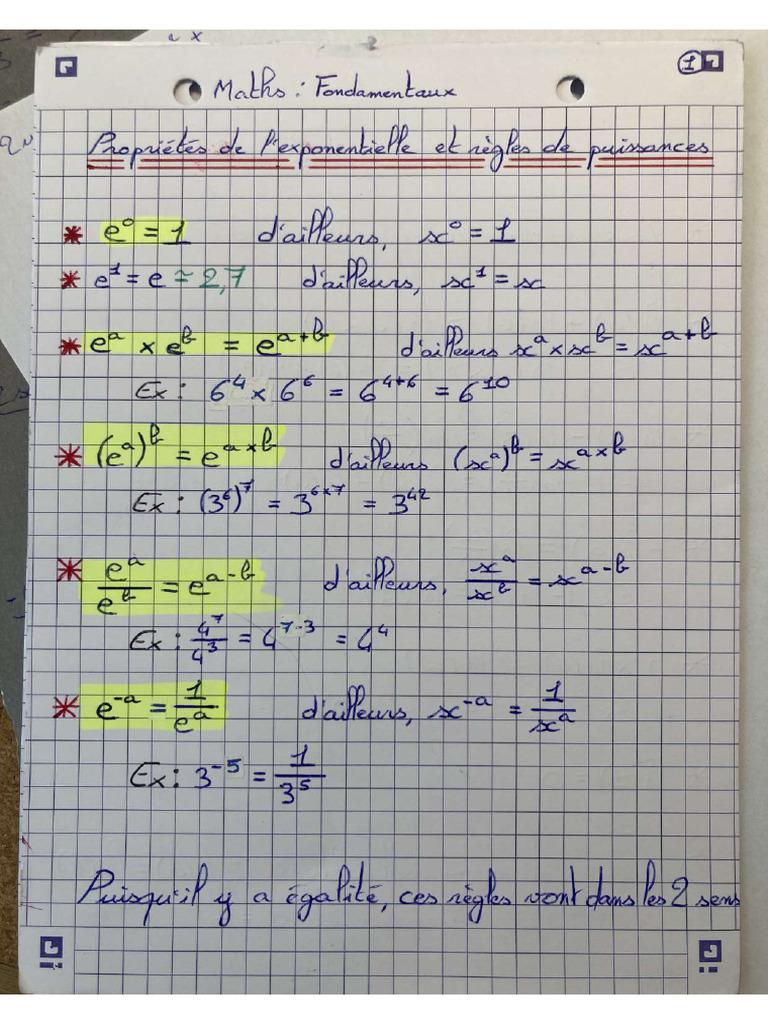 1
Maths : Fondamentaux
Propriétés de l'exponentielle et règles de puissances
* e⁰ = 1 d'ailleurs, x⁰ = 1
* e¹ = e ≃ 2,7 d'ailleurs, x¹ = x
* eᵃ × eᵇ = eᵃ⁺ᵇ d'ailleurs xᵃ × xᵇ = xᵃ⁺ᵇ
Ex : 6⁴ × 6⁶ = 6⁴⁺⁶ = 6¹⁰
* (eᵃ)ᵇ = eᵃˣᵇ d'ailleurs (xᵃ)ᵇ = xᵃˣᵇ
Ex : (3⁶)⁷ = 3⁶ˣ⁷ = 3⁴²
* eᵃ/eᵇ = eᵃ⁻ᵇ d'ailleurs, xᵃ/xᵇ = xᵃ⁻ᵇ
Ex : 4⁷/4³ = 4⁷⁻³ = 4⁴
* e⁻ᵃ = 1/eᵃ d'ailleurs, x⁻ᵃ = 1/xᵃ
Ex : 3⁻⁵ = 1/3⁵
Puisqu'il y a égalité, ces règles vont dans les 2 sens